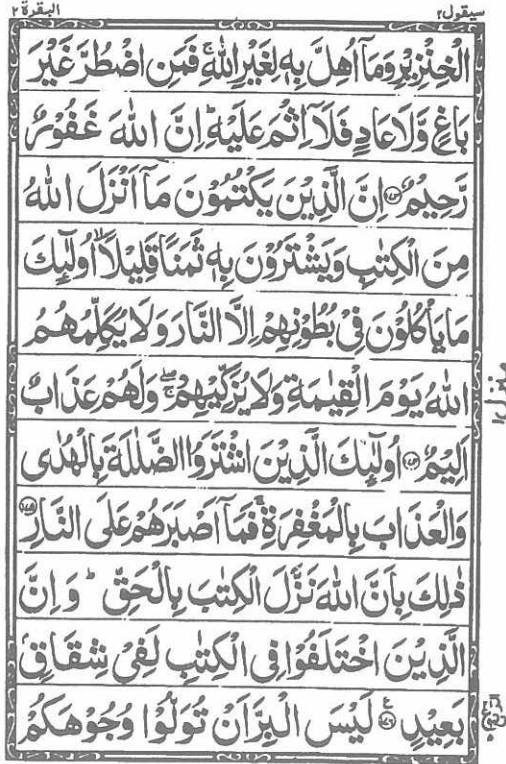 سيقول ٢ البقرة ٢
الْخِنْزِيْرِ وَمَآ اُهِلَّ بِهٖ لِغَيْرِ اللّٰهِ ۚ فَمَنِ اضْطُرَّ غَيْرَ
بَاغٍ وَّلَا عَادٍ فَلَآ اِثْمَ عَلَيْهِ ؕ اِنَّ اللّٰهَ غَفُوْرٌ
رَّحِيْمٌ ﴿۱۷۳﴾ اِنَّ الَّذِيْنَ يَكْتُمُوْنَ مَآ اَنْزَلَ اللّٰهُ
مِنَ الْكِتٰبِ وَيَشْتَرُوْنَ بِهٖ ثَمَنًا قَلِيْلًا ۙ اُولٰٓئِكَ
مَا يَاْكُلُوْنَ فِيْ بُطُوْنِهِمْ اِلَّا النَّارَ وَلَا يُكَلِّمُهُمُ
اللّٰهُ يَوْمَ الْقِيٰمَةِ وَلَا يُزَكِّيْهِمْ ۖۚ وَلَهُمْ عَذَابٌ
اَلِيْمٌ ﴿۱۷۴﴾ اُولٰٓئِكَ الَّذِيْنَ اشْتَرَوُا الضَّلٰلَةَ بِالْهُدٰى
وَالْعَذَابَ بِالْمَغْفِرَةِ ۚ فَمَآ اَصْبَرَهُمْ عَلَى النَّارِ ﴿۱۷۵﴾
ذٰلِكَ بِاَنَّ اللّٰهَ نَزَّلَ الْكِتٰبَ بِالْحَقِّ ؕ وَاِنَّ
الَّذِيْنَ اخْتَلَفُوْا فِي الْكِتٰبِ لَفِيْ شِقَاقٍۭ
بَعِيْدٍ ﴿۱۷۶﴾ لَيْسَ الْبِرَّ اَنْ تُوَلُّوْا وُجُوْهَكُمْ
منزل ١